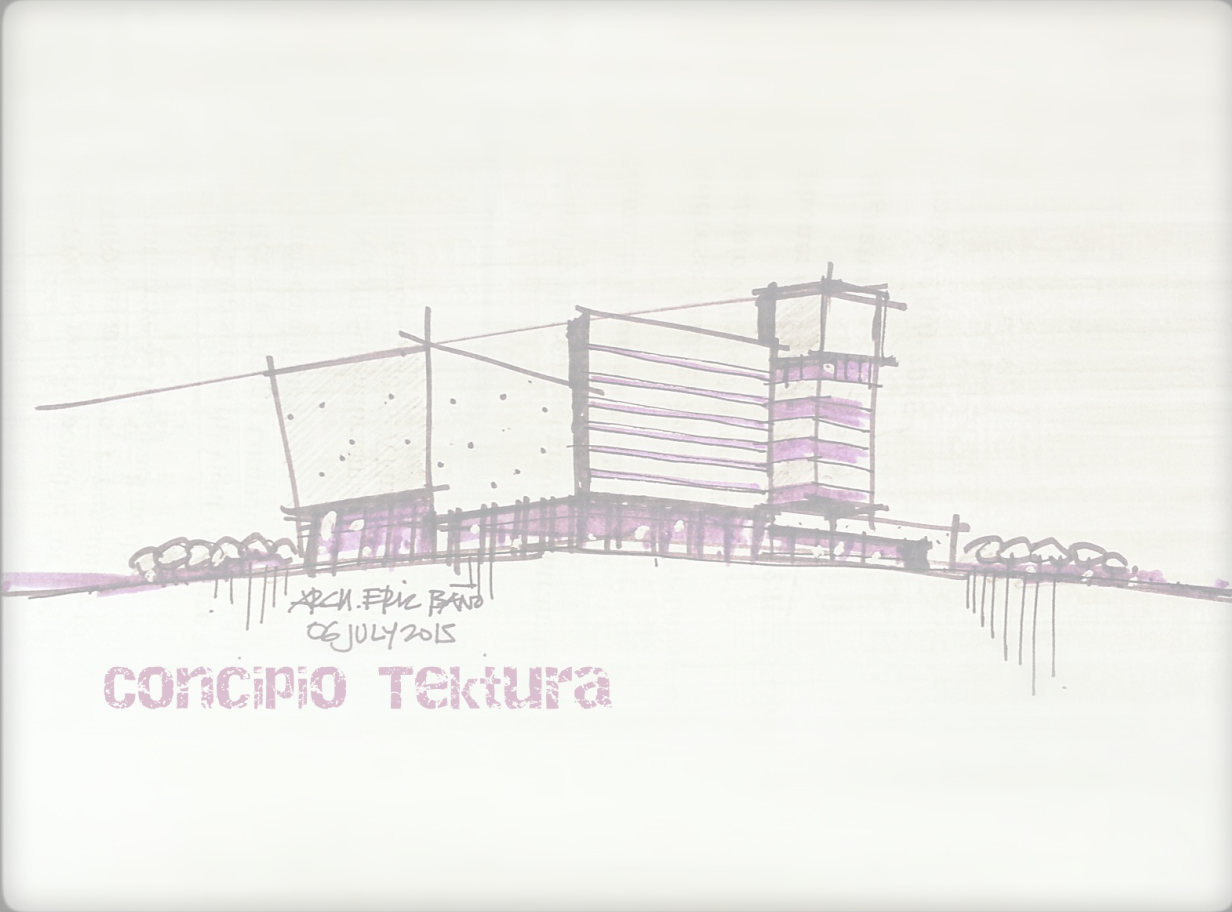 ARCH. ERIC BANO
06 JULY 2015
concipio Tektura